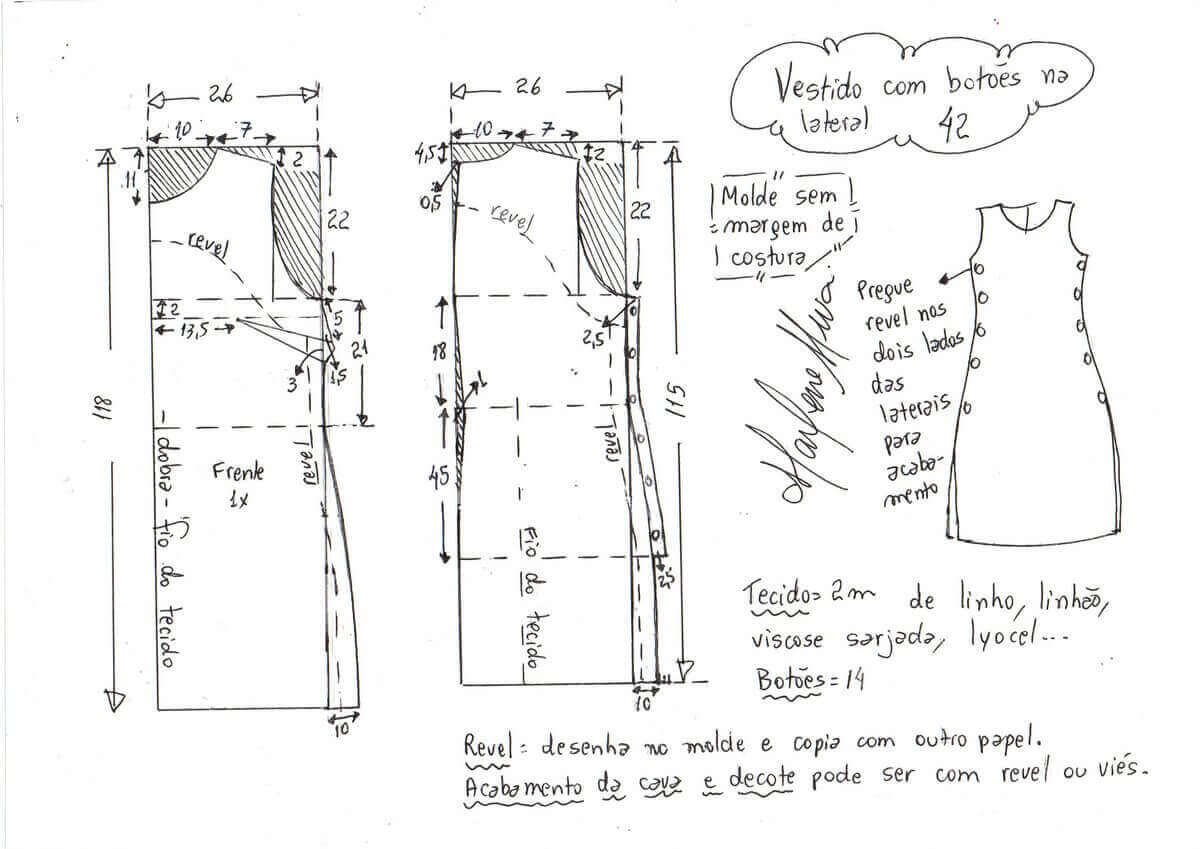 Vestido com botões na
lateral 42
Molde sem
margem de
costura
Pregue
revel nos
dois lados
das
laterais
para
acaba-
mento
26
10 7
11
2
22
revel
2
13,5
5
1,5
3
21
118
revel
Frente
1x
dobra - fio do tecido
10
26
10 7
4,5
2
0,5
22
revel
2,5
18
1
45
115
revel
Fio do tecido
2,5
10
Tecido = 2m de linho, linhão,
viscose sarjada, lyocel...
Botões = 14
Revel = desenha no molde e copia com outro papel.
Acabamento da cava e decote pode ser com revel ou viés.